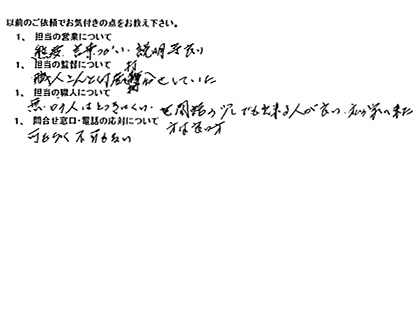 以前のご依頼でお気付きの点をお教え下さい。
1、担当の営業について
態度、言葉づかい、説明等良い
1、担当の監督について
職人さんと打合せしていた
1、担当の職人について
無口の人はとっつきにくい、世間話の少しでも出来る人が良い、家に来た方は良い方
1、問合せ窓口・電話の応対について
可もなく不可もない